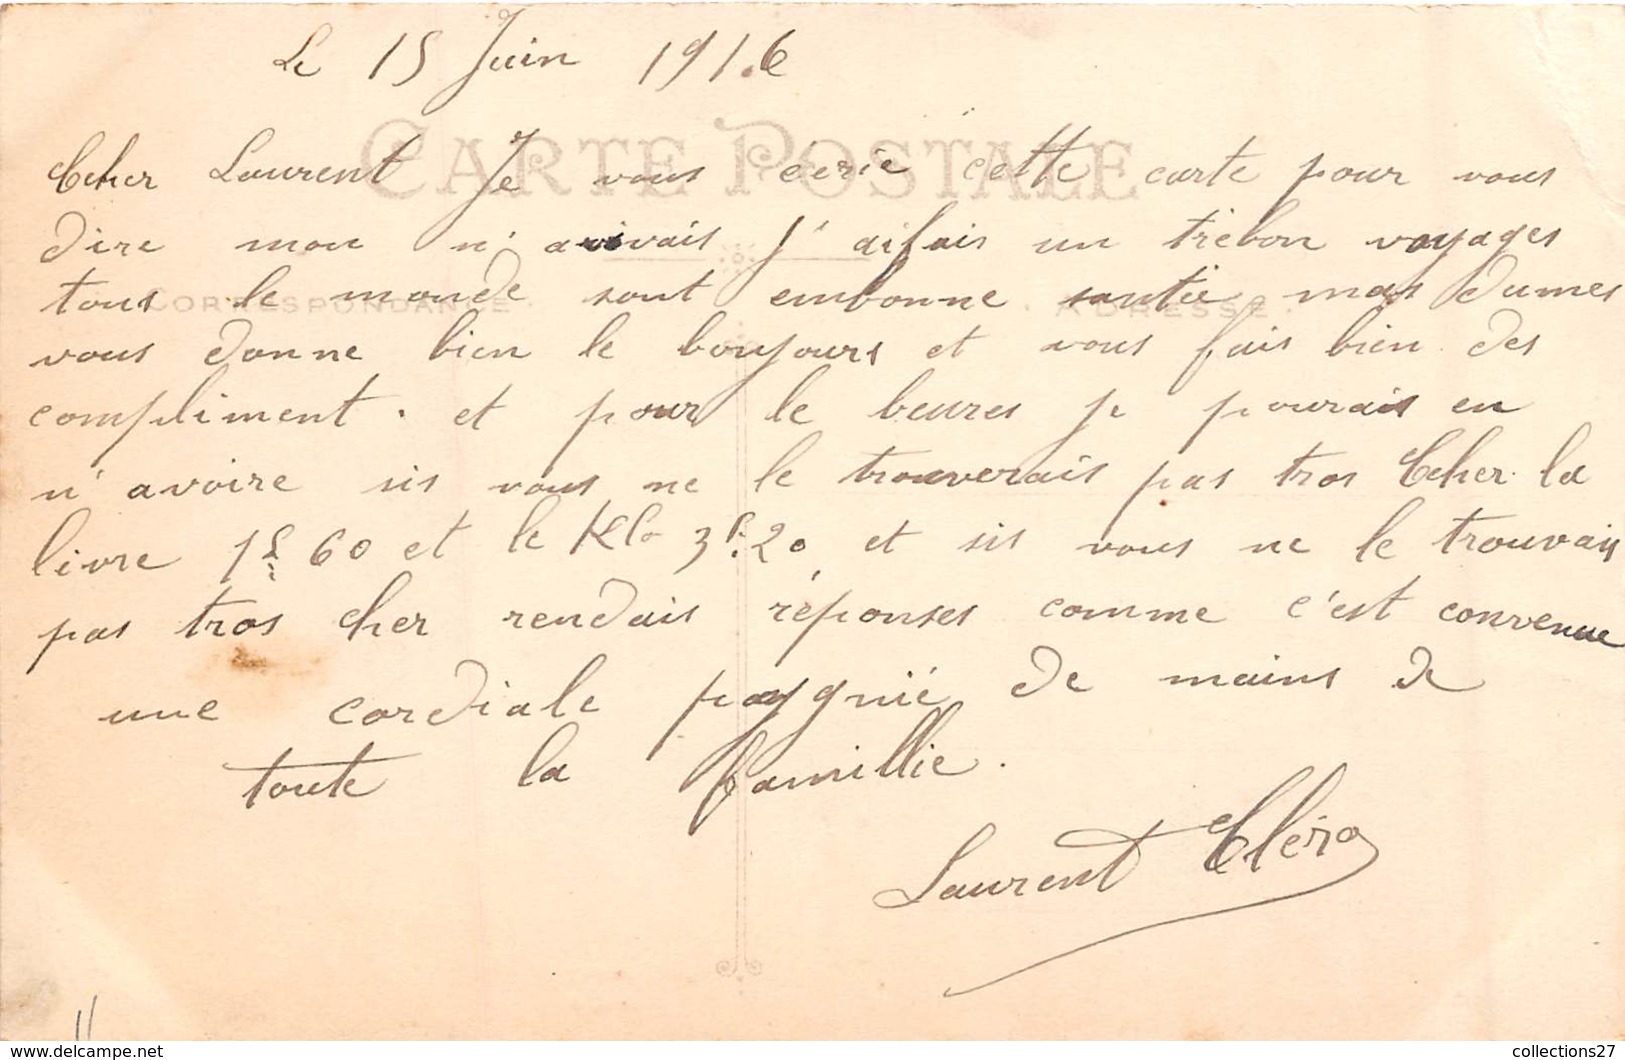 Le 15 Juin 1916
CARTE POSTALE
Cher Laurent Je vous écrie cette carte pour vous
dire mon n'arivais J'aifais un trèbon voyages
CORRESPONDANCE
ADRESSE
tous le monde sont embonne santie mas dames
vous donne bien le bonjours et vous fais bien des
compliment. et pour le beures je pourais en
n'avoire sis vous ne le trouverais pas tros Cher la
livre 1f 60 et le Klo 3f.20, et sis vous ne le trouvais
pas tros Cher rendais réponses comme c'est convenue
une cordiale poygnié de mains de
toute la famillie.
Laurent Cléro
collections27